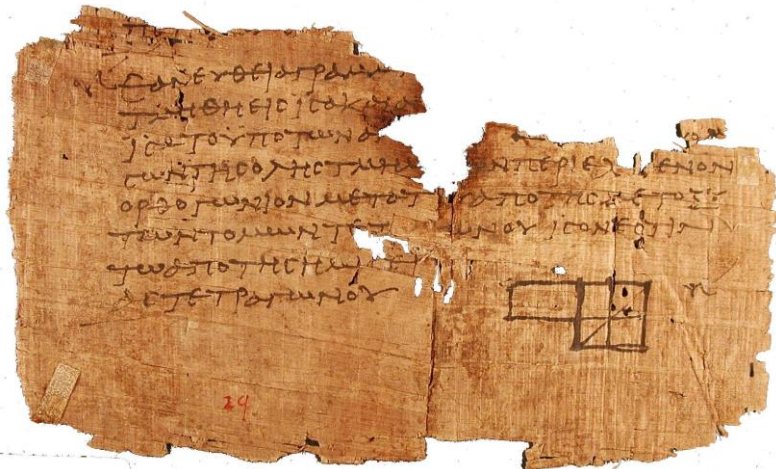 ΕΑΝΕΥΘΕΙΑΓΡΑΜΜ
ΤΜΗΘΗΕΙϹΙϹΑΚΑΙΑ
ΙϹΑΤΟΥΠΟΤΩΝΑ
ϹΩΝΤΗϹΟΛΗϹΤΜΗΜ ΩΝΠΕΡΙΕΧ ΕΝΟΝ
ΟΡΘΟΓΩΝΙΟΝΜΕΤΑΤ ΥΑΠΟΤΗϹΜΕΤΟΞΥ
ΤΩΝΤΟΜΩΝΤΕΤ ΩΝΟΥΙϹΟΝΕϹΤΙΝ
ΤΩΑΠΟΤΗϹΗΜΙϹΙ
ΑϹΤΕΤΡΑΓΩΝΟΥ
29